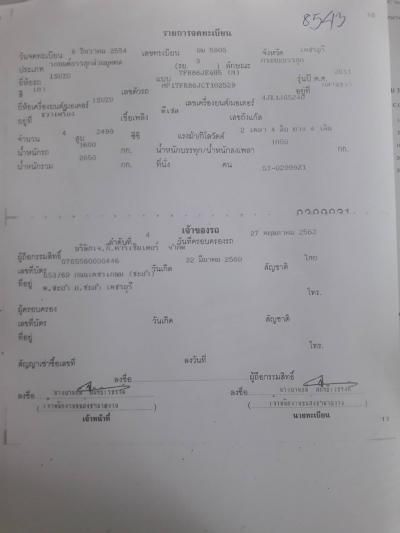 8543
รายการจดทะเบียน
วันจดทะเบียน 8 ธันวาคม 2554 เลขทะเบียน บม 5905 จังหวัด เพชรบุรี
ประเภท รถยนต์บรรทุกส่วนบุคคล (รย. 3 ) ลักษณะ กระบะบรรทุก
ยี่ห้อรถ ISUZU แบบ TFR86JE4R5 (M) รุ่นปี ค.ศ. 2011
สี เลขตัวรถ MP1TFR86JCT102529 อยู่ที่
ยี่ห้อเครื่องยนต์/มอเตอร์ ISUZU เลขเครื่องยนต์/มอเตอร์
อยู่ที่ ขวาเครื่อง เชื้อเพลิง ดีเซล เลขถังแก๊ส
จำนวน 4 สูบ 2499 ซีซี แรงม้า/กิโลวัตต์ 2 เพลา 4 ล้อ ยาง 4 เส้น
น้ำหนักรถ 1600 กก. น้ำหนักบรรทุก/น้ำหนักลงเพลา 1050 กก.
น้ำหนักรวม 2650 กก. ที่นั่ง คน 57-0299921
เจ้าของรถ
ลำดับที่ 4 วันที่ครอบครองรถ 27 พฤษภาคม 2562
ผู้ถือกรรมสิทธิ์ จำกัด
เลขที่บัตร 0765560000446 วันเกิด 22 มีนาคม 2560 สัญชาติ ไทย
ที่อยู่ 653/69 ถนนเพชรเกษม (ชะอำ)
ต.ชะอำ อ.ชะอำ เพชรบุรี โทร.
ผู้ครอบครอง
เลขที่บัตร วันเกิด สัญชาติ
ที่อยู่
โทร.
สัญญาเช่าซื้อเลขที่ ลงวันที่
ลงชื่อ ผู้ถือกรรมสิทธิ์
ลงชื่อ ลงชื่อ
เจ้าหน้าที่ นายทะเบียน